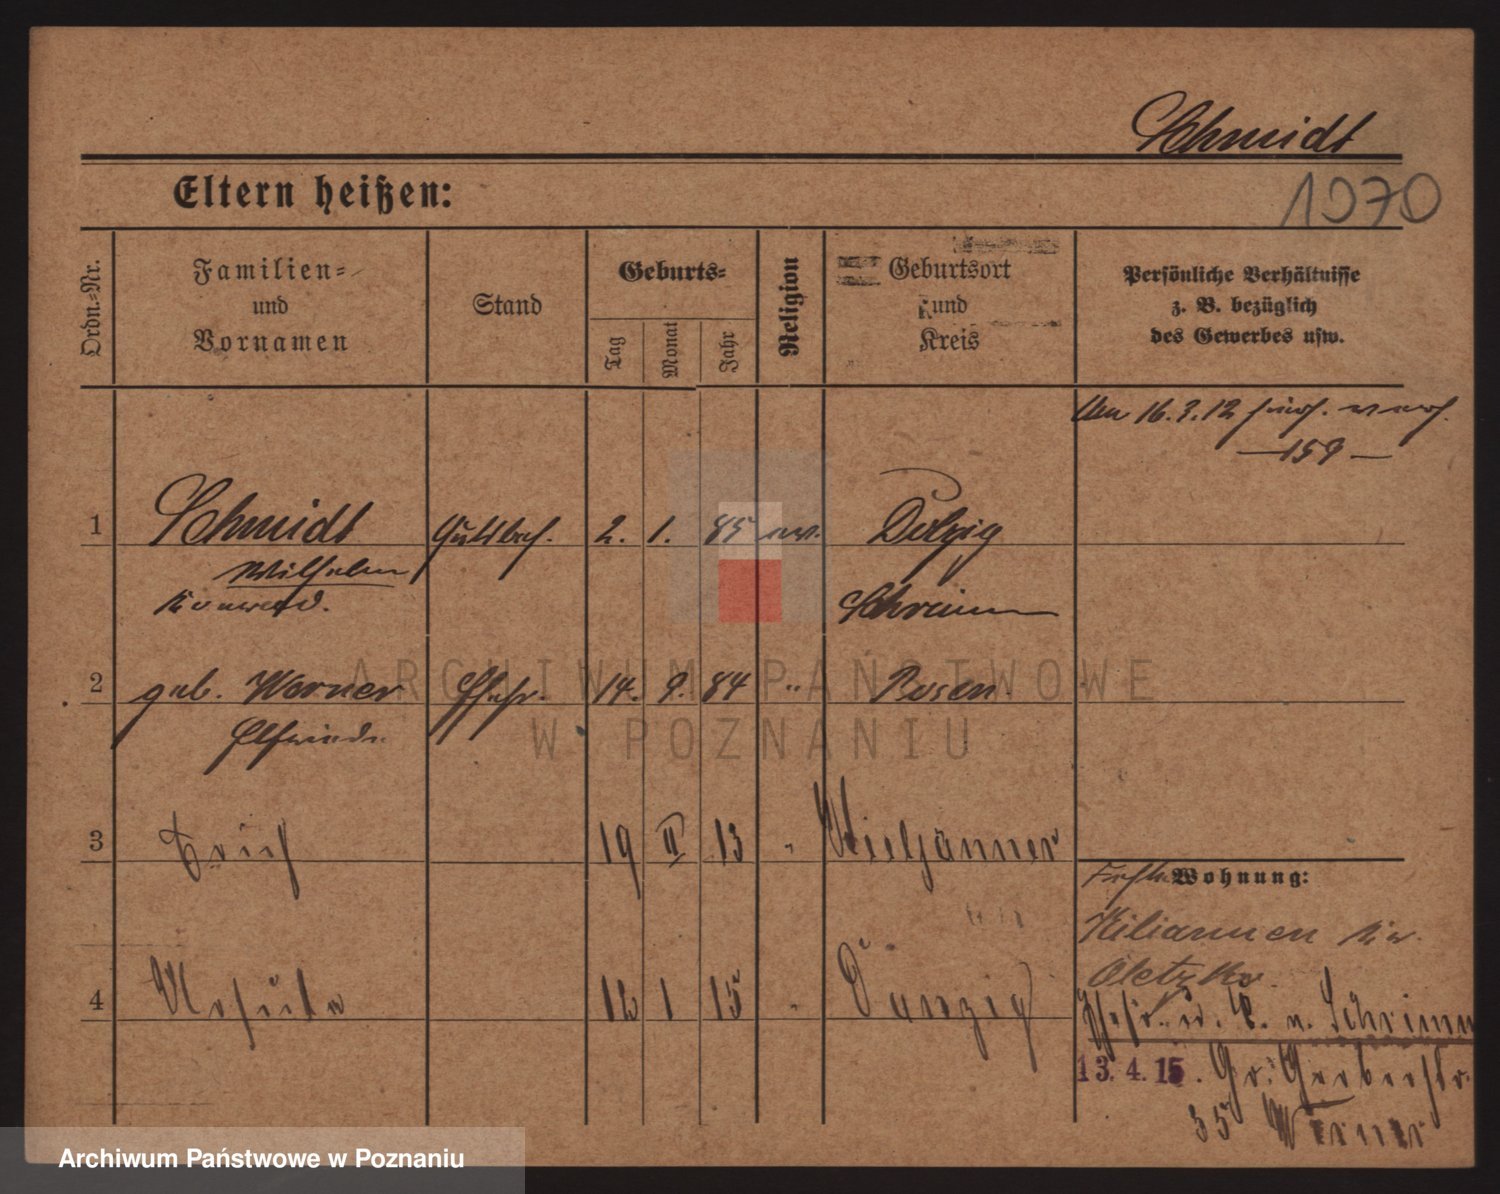 Schmidt
Eltern heißen:
1970
Ordn.-Nr.
Familien-
und
Vornamen
Stand
Geburts-
Tag
Monat
Jahr
Religion
Geburtsort
und
Kreis
Persönliche Verhältnisse
z. B. bezüglich
des Gewerbes usw.
Am 16.3.12
—159—
1 Schmidt 2. 1. 85 ev. Dolzig
Wilhelm
Konrad. Schrimm
2 geb. Werner Ehefr. 14. 9. 84 " Posen.
Elfriede
3 Erich 19 II 13 "
Wohnung:
Kiliannen Kr.
Oletzko.
4 Ursula 12 1 15 " Danzig
Ehefr. u. K. n. Schrimm
13.4.15. Gr. Gerberstr.
35 Werner
ARCHIWUM PAŃSTWOWE
W POZNANIU
Archiwum Państwowe w Poznaniu